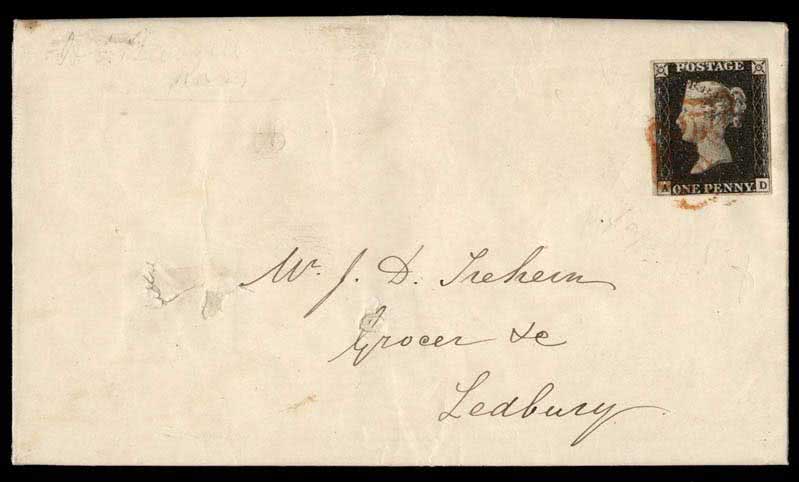 POSTAGE
A ONE PENNY D
Mr. J. D. Trehern
Grocer &c
Ledbury